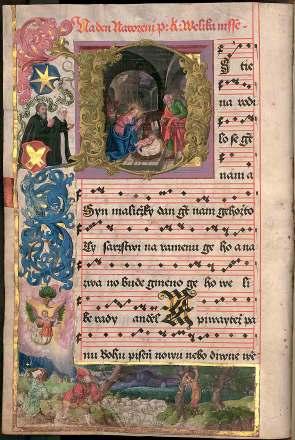 Na den Narozeni p: K: Welika msse
D
Stie
na rodi
lo se gt
nam a
Syn maličky dan gt nam gehožto
ly sarzstwi na ramenu ge ho a na
zwa no bude gmeno ge ho we li
ke rady andel Zpiwaytež pa
nu bohu pisen nowu nebo diwne we